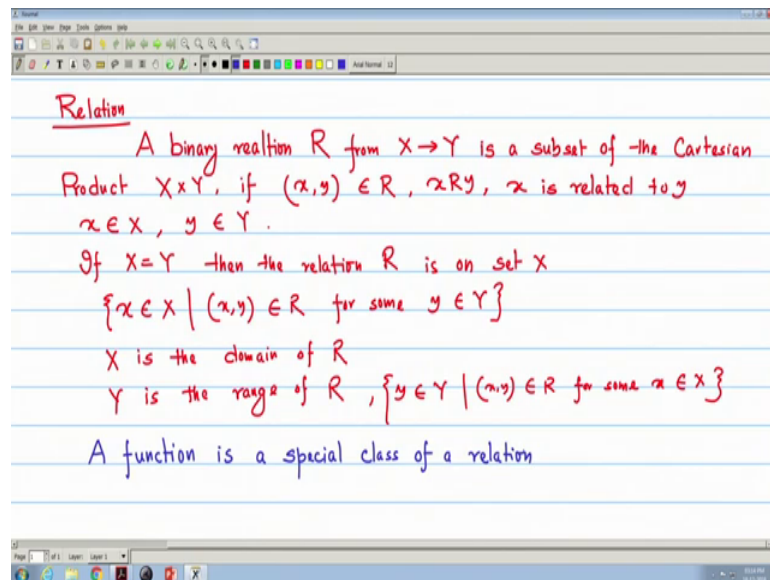 Journal
File Edit View Page Tools Options Help
Arial Normal 12
Relation
A binary realtion R from X → Y is a subset of the Cartesian
Product X x Y, if (x,y) ∈ R, xRy, x is related to y
x ∈ X, y ∈ Y.
If X = Y then the relation R is on set X
{x ∈ X | (x,y) ∈ R for some y ∈ Y}
X is the domain of R
Y is the range of R, {y ∈ Y | (x,y) ∈ R for some x ∈ X}
A function is a special class of a relation
Page 1 of 1 Layer: Layer 1